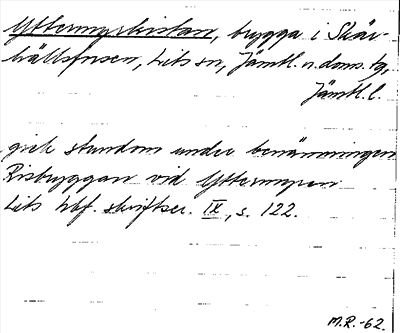 Yttermyrkistan, brygga i Skär-
hällsforsen, Lits sn, Jämtl. n. doms. tg,
Jämtl. l.
gick stundom under benämningen
Risbryggan vid Yttermyren
Lits hbf. skriftser. IX, s. 122.
M.R.-62.